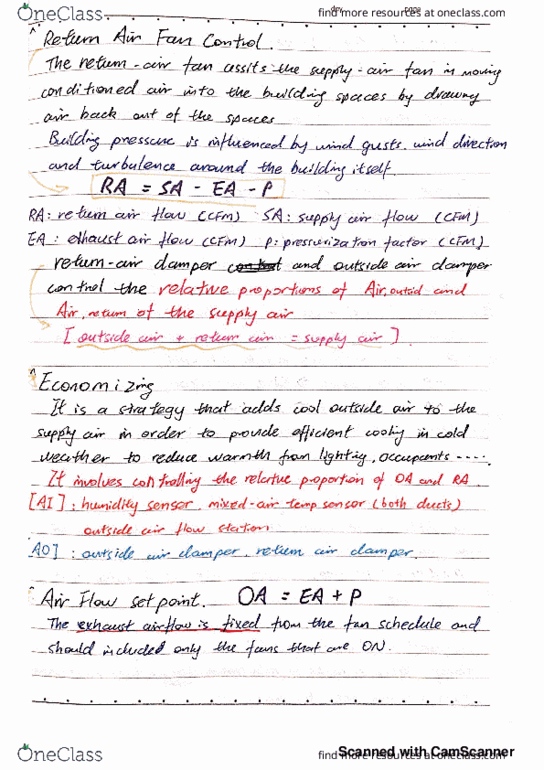 OneClass
find more resources at oneclass.com
Return Air Fan Control.
The return-air fan assits the supply-air fan in moving
conditioned air into the building spaces by drawing
air back out of the spaces
Building pressure is influenced by wind gusts, wind direction
and turbulence around the building itself
RA = SA - EA - P
RA: return air flow (CFM) SA: supply air flow (CFM)
EA: exhaust air flow (CFM) P: pressurization factor (CFM)
return-air damper and outside air damper
control the relative proportions of Air, outsid and
Air, return of the supply air
[outside air + return air = supply air].
Economizing
It is a strategy that adds cool outside air to the
supply air in order to provide efficient cooling in cold
weather to reduce warmth from lighting, occupants ....
It involves controlling the relative proportion of OA and RA.
[AI]: humidity sensor, mixed-air temp sensor (both ducts)
outside air flow station
AO]: outside air damper, return air damper.
Air Flow setpoint. OA = EA + P
The exhaust airflow is fixed from the fan schedule and
should included only the fans that are ON.
OneClass
find more resources at oneclass.com
Scanned with CamScanner